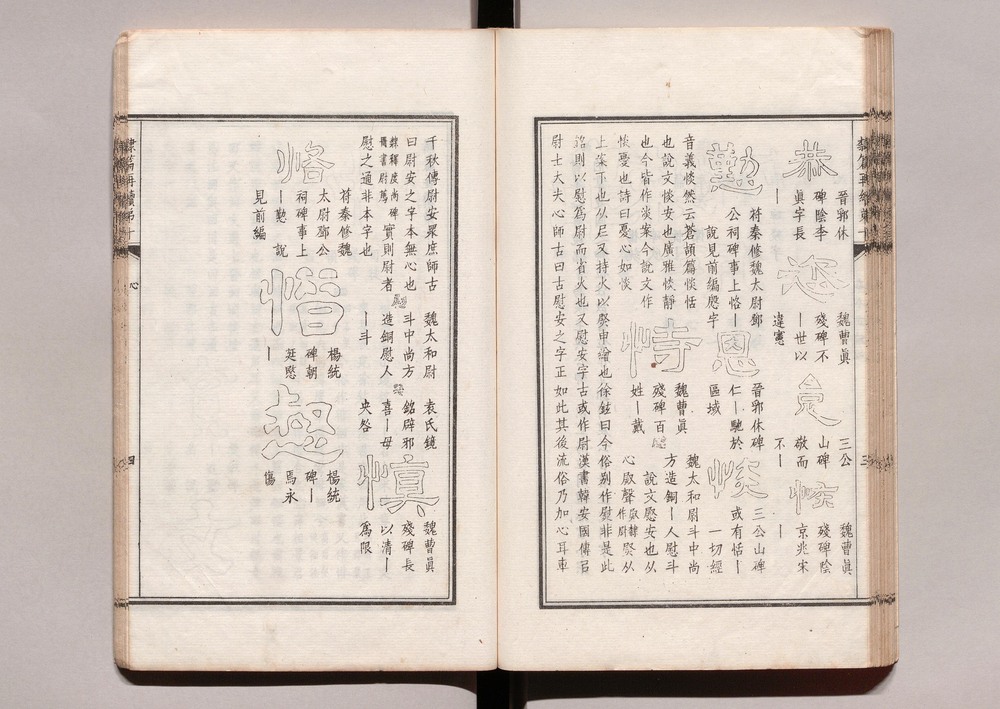 隸篇再續第十
三
恭
晉郛休
碑陰李
眞字長
—
恣
魏曹眞
殘碑不
—世以
違憲
怠
三公
山碑
敬而
不—
恢
魏曹眞
殘碑陰
京兆宋
—
懃
苻秦修魏太尉鄧
公祠碑事上恪—
說見前編慇字
恩
晉郛休碑
仁—馳於
區域
惔
三公山碑
或有恬—
一切經
音義惔然云蒼頡篇惔恬
也說文惔安也廣雅惔靜
也今皆作淡案今說文作
惔憂也詩曰憂心如惔
恃
魏曹眞
殘碑百
姓—戴
魏太和尉斗中尚
方造銅—人慰斗
說文慰安也从
心尉聲
上案下也从𡰥又持火以申繒也徐鉉曰今俗別作熨非是此
則以慰爲尉而省火也又慰安字古或作尉漢書韓安國傳召
尉士大夫心師古曰古慰安之字正如此其後流俗乃加心耳車
千秋傳尉安眾庶師古
曰尉安之字本無心也
隸釋度尚碑
實則尉者
慰之通非本字也
魏太和尉
斗中尚方
造銅慰人
—斗
袁氏鏡
銘辟邪
喜—母
央咎
愼
魏曹眞
殘碑長
以清—
爲限
恪
苻秦修魏
太尉鄧公
祠碑事上
—懃 說
見前編
楊統
碑朝
廷愍
—
楊統
碑—
焉永
傷
隸篇再續第十
心
四